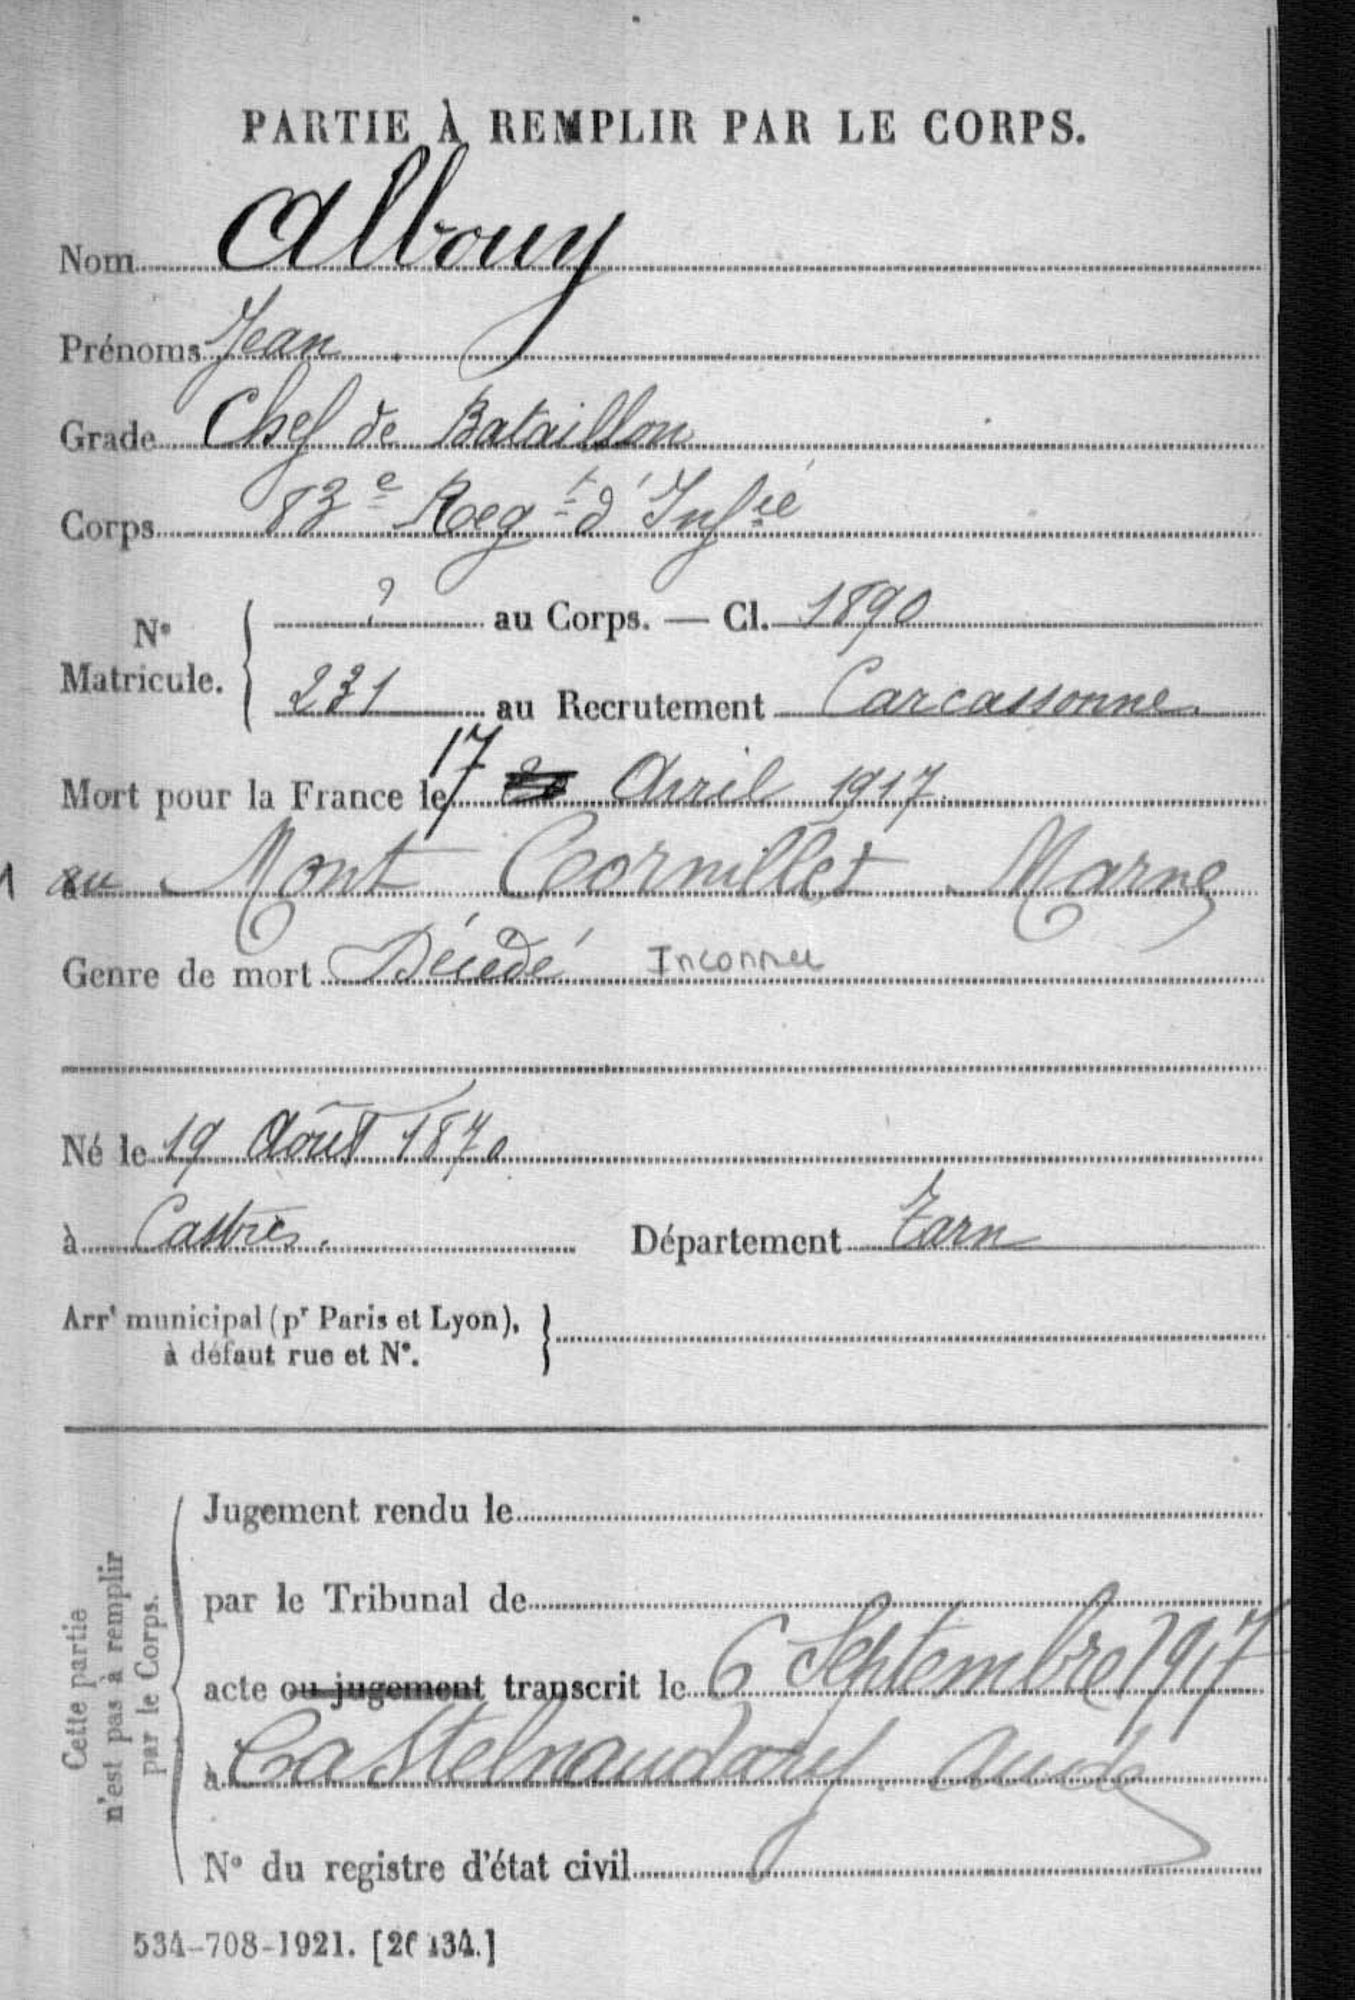 PARTIE À REMPLIR PAR LE CORPS.
Nom Albouy
Prénoms Jean
Grade Chef de Bataillon
Corps 83e Regt d'Infie
N° Matricule. { ? au Corps. — Cl. 1890
231 au Recrutement Carcassonne
Mort pour la France le 17 Avril 1917
au Mont Cornillet Marne
Genre de mort Décédé Inconnu
Né le 19 Août 1870
à Castres. Département Tarn
Arrt municipal (pr Paris et Lyon),
à défaut rue et N°.
Cette partie
n'est pas à remplir
par le Corps.
Jugement rendu le
par le Tribunal de
acte ou jugement transcrit le 6 Septembre 1917
à Castelnaudary. Aude
N° du registre d'état civil
534-708-1921. [26134.]